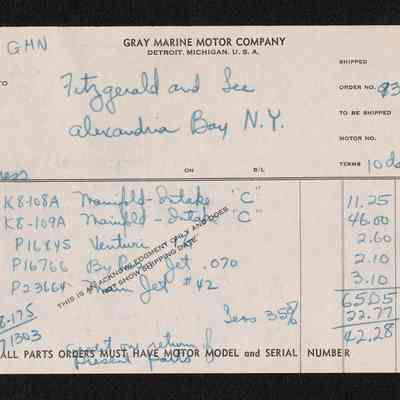 GHN
GRAY MARINE MOTOR COMPANY
DETROIT, MICHIGAN, U. S. A.
SHIPPED
TO
Fitzgerald and Lee
ORDER NO. 93
Alexandria Bay N.Y.
TO BE SHIPPED
MOTOR NO.
ON B/L
TERMS 10 da
ress
K8-108A Manifold-Intake "C" 11.25
K8-109A Manifold-Intake "C" 46.00
P16845 Venturi 2.60
P16766 By Pass Jet .070 2.10
P23664 Main Jet #42 3.10
THIS IS AN ACKNOWLEDGMENT ONLY AND DOES
NOT SHOW SHIPPING DATE
65.05
8-175 Less 35% 22.77
71303 42.28
credit on return of
ALL PARTS ORDERS MUST HAVE MOTOR MODEL and SERIAL NUMBER
present parts